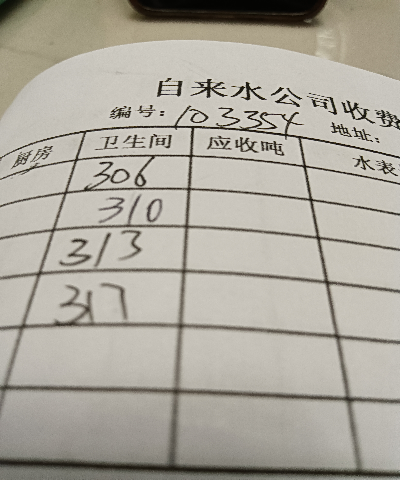 自来水公司收费
编号: 103354 地址:
厨房 卫生间 应收吨 水表
306
310
313
317